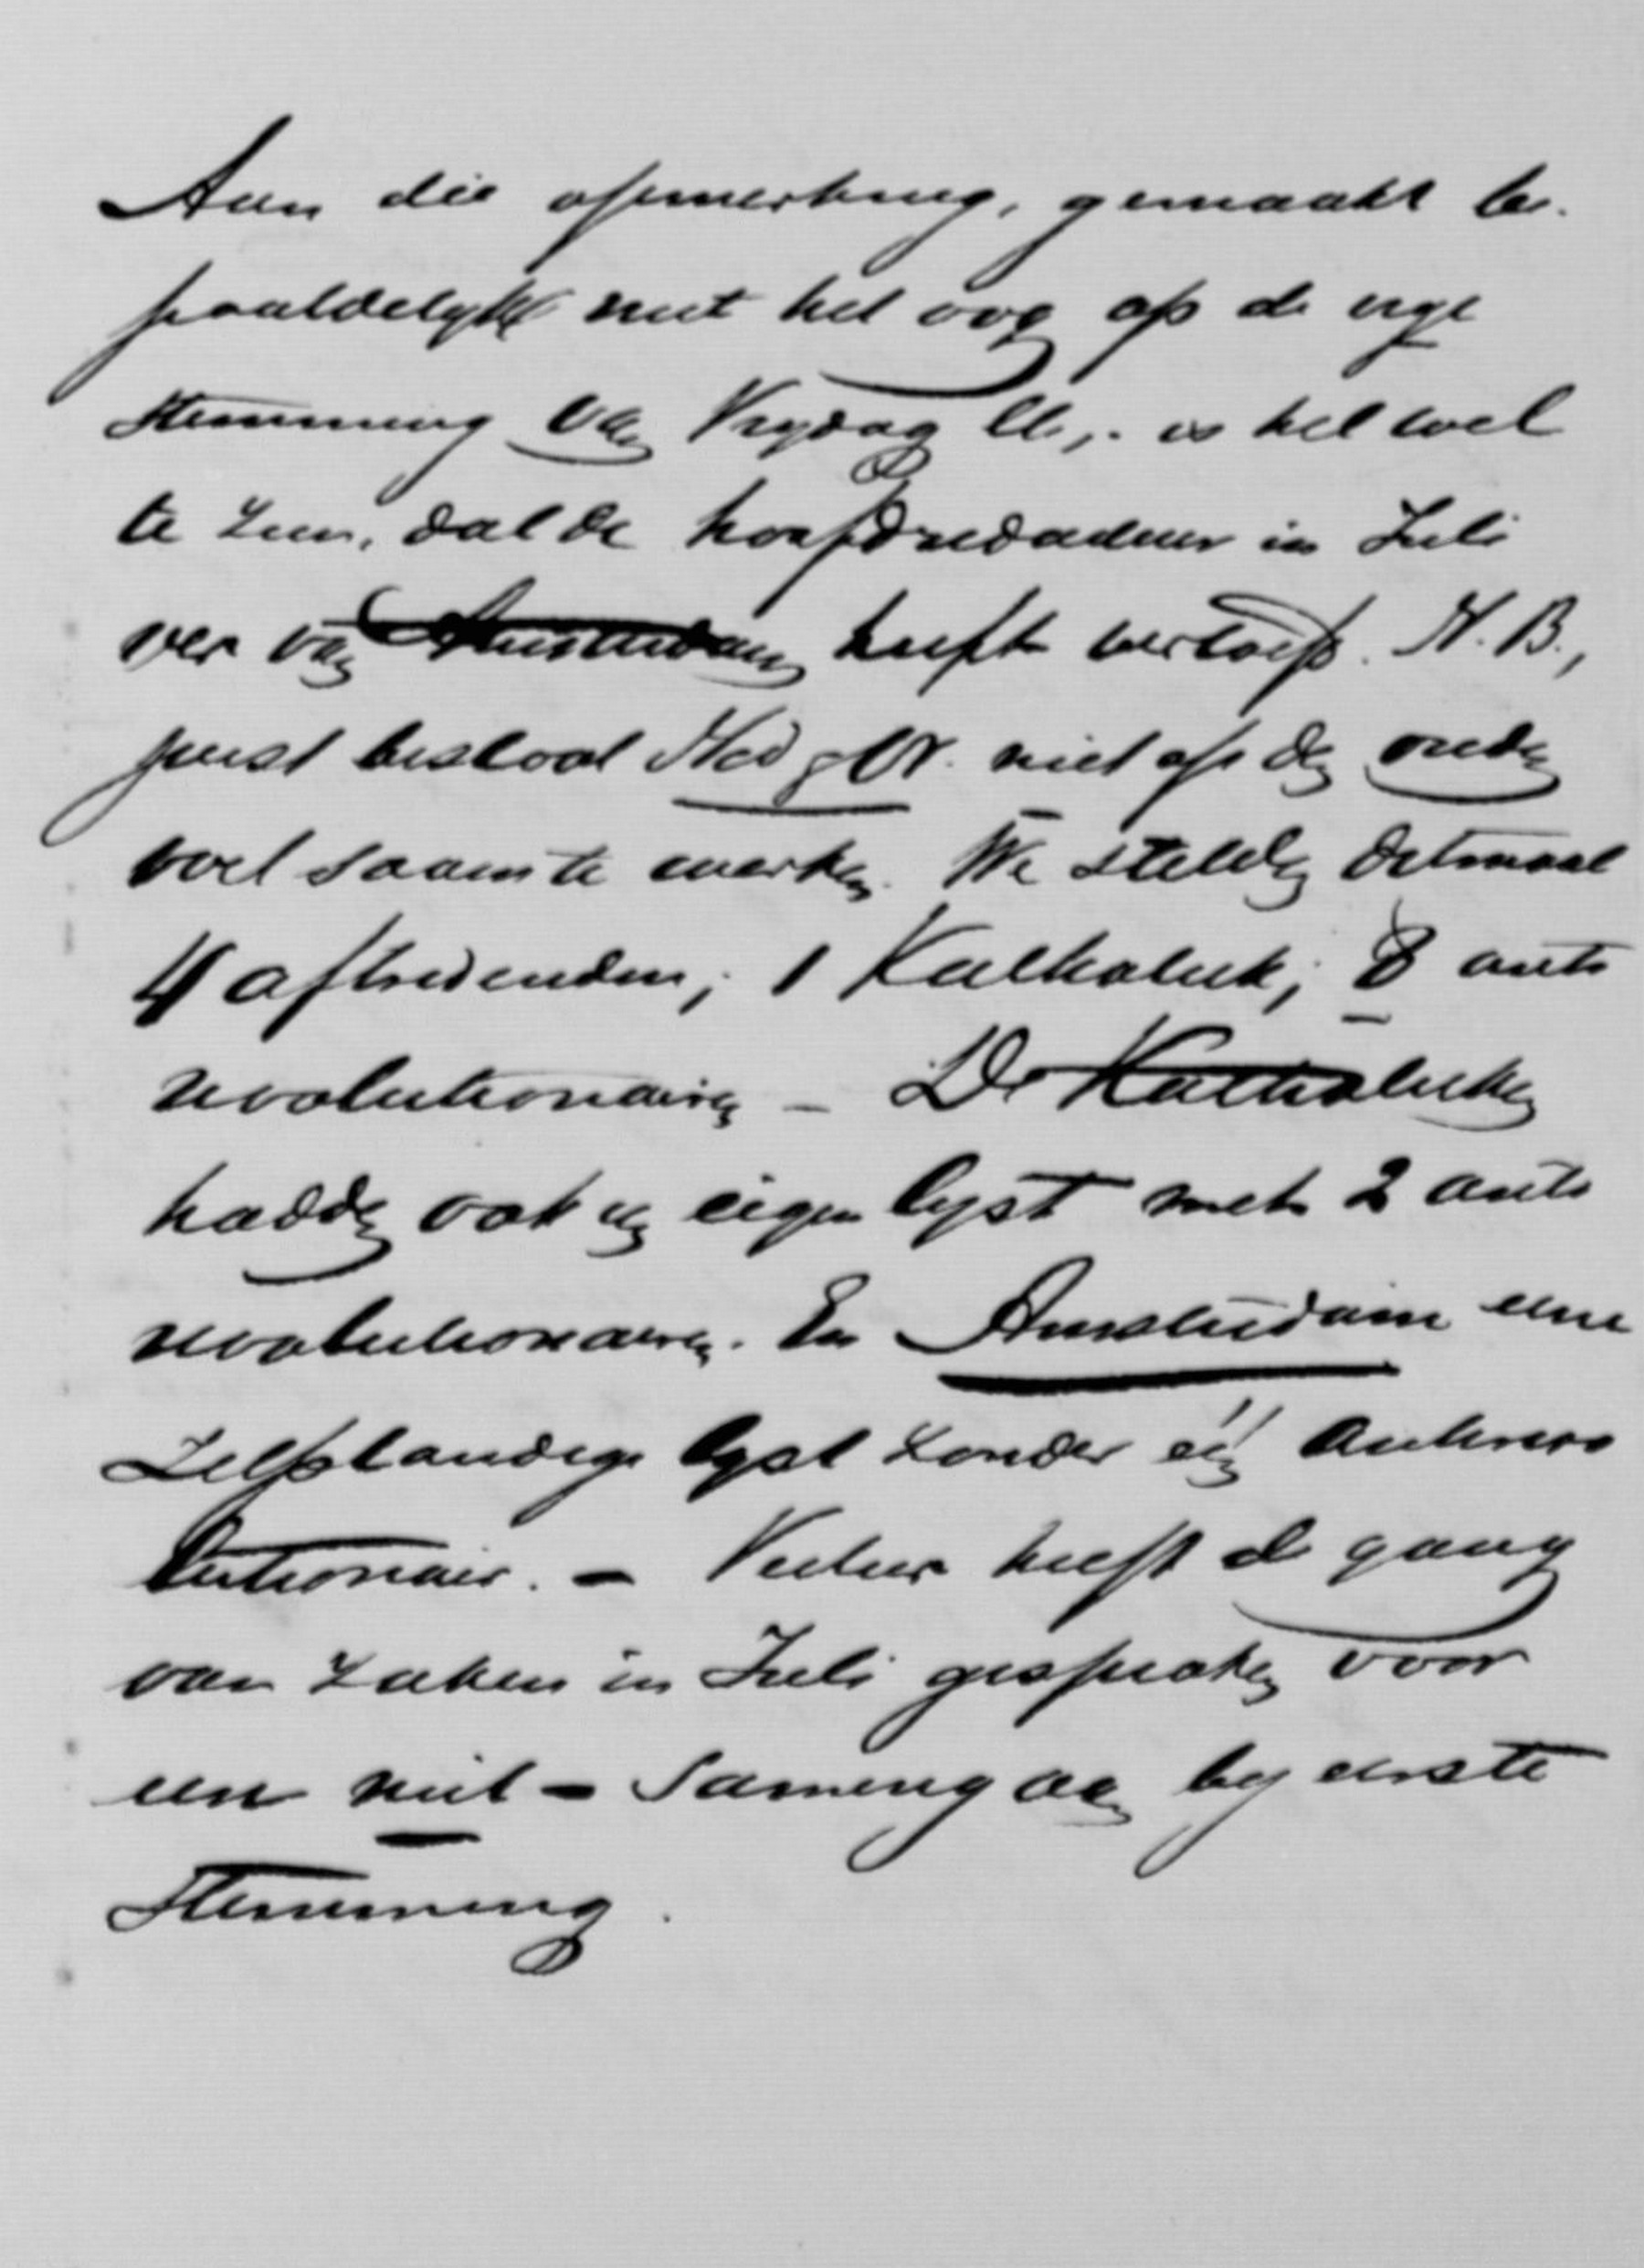 Aan die opmerking, gemaakt be-
paaldelyk met het oog op de
stemming van Vrydag ll., is het wel
te zien, dat de hoofdredacteur in Juli
ver van Amsterdam heeft vertoefd. N.B.,
juist besloot Ned & Or. niet op den ouden
voet saam te werken. We stelden detmaal
4 aftredenden, 1 Katholiek, 8 anti
revolutionairen – De Katholieken
hadden ook een eigen lyst met 2 anti
revolutionairen. En Amsterdam eene
Zelfstandige lyst zonder één antirevo
lutionair. – Verder heeft de gang
van zaken in Juli gesproken voor
een niet – Samengaan by eerste
Stemming.